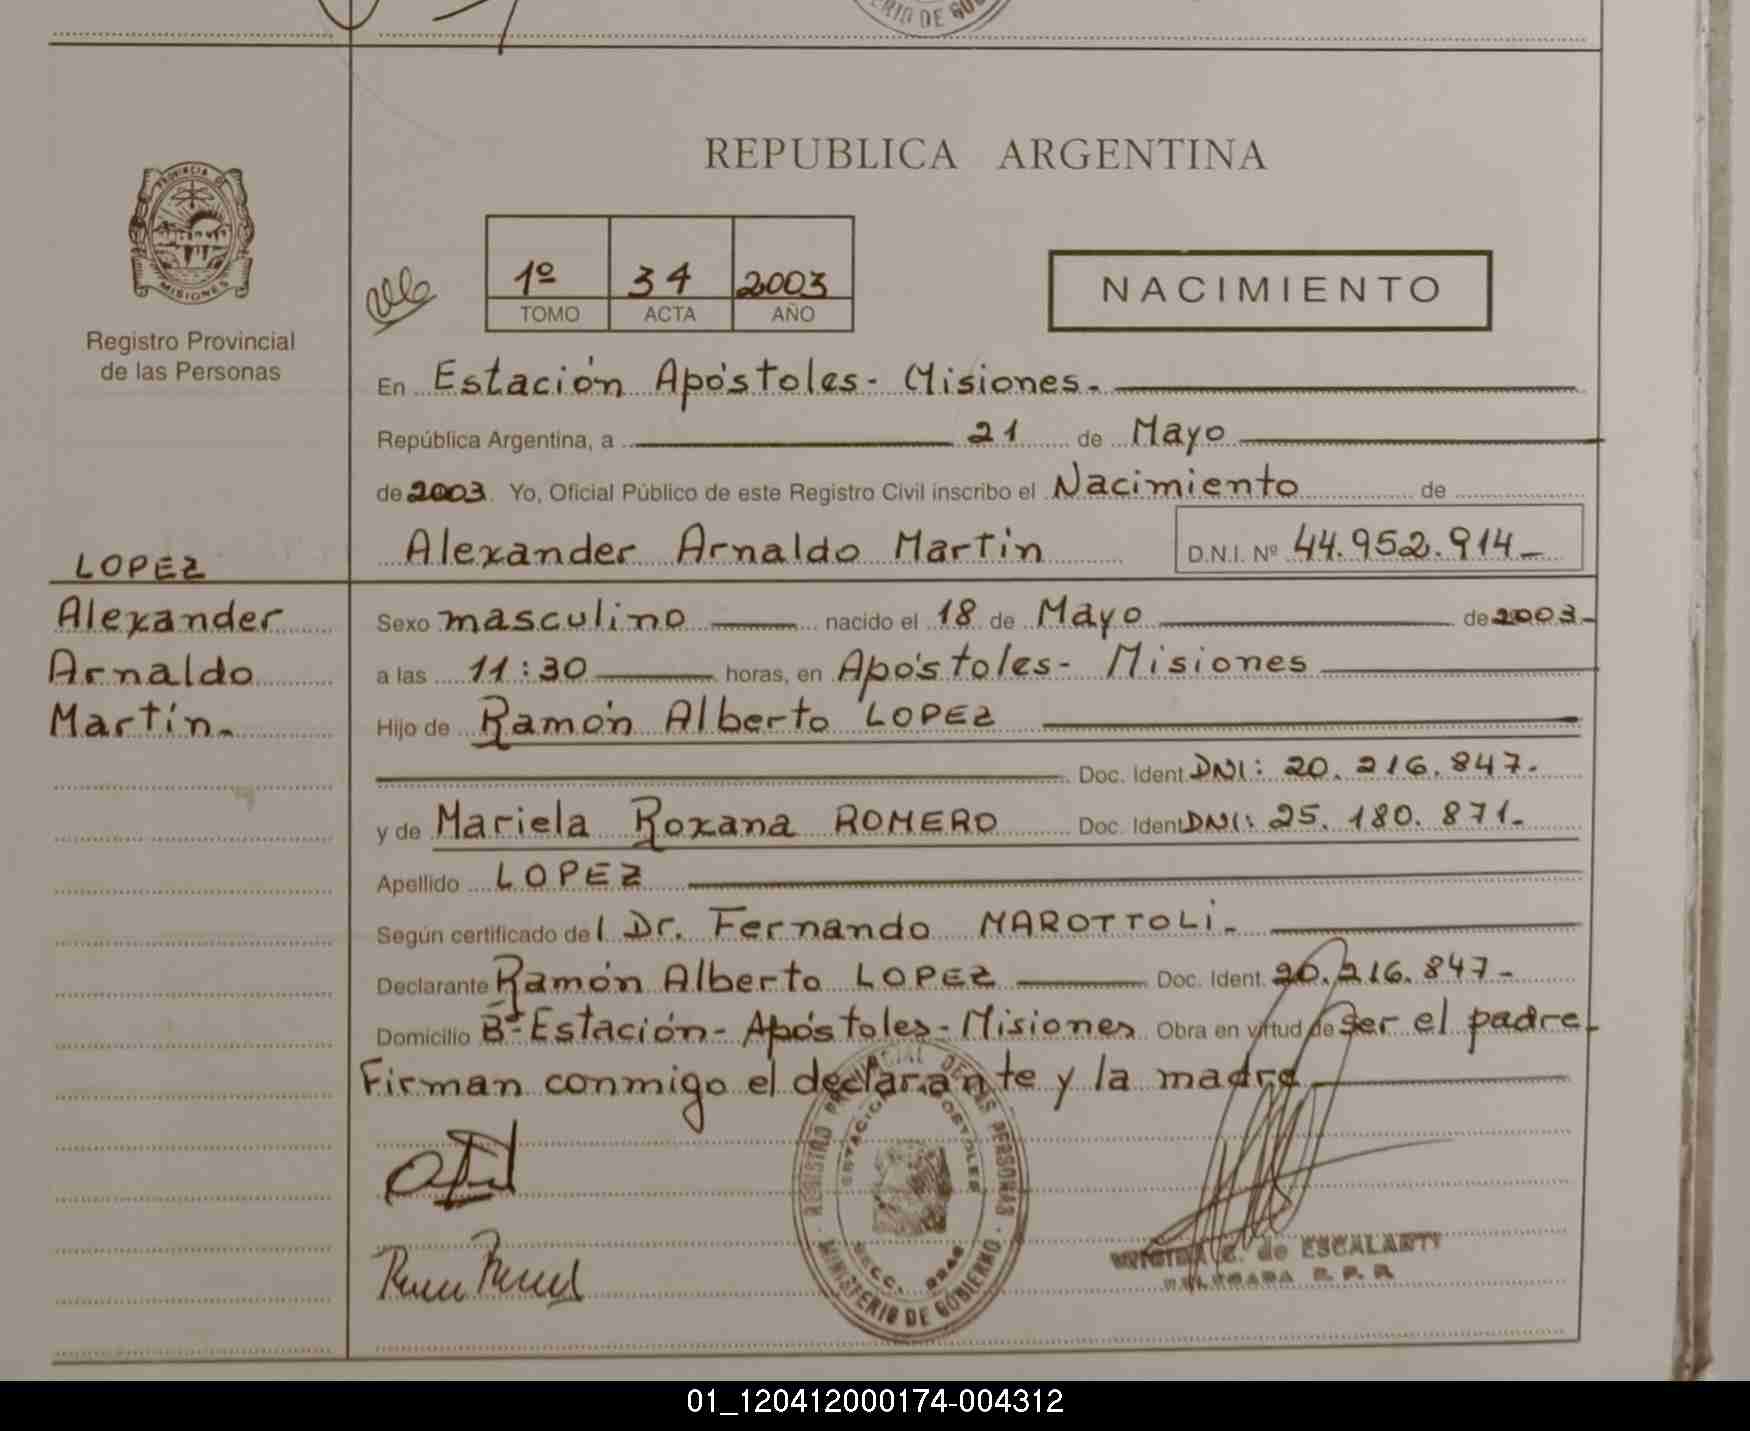 REPUBLICA ARGENTINA
PROVINCIA DE
MISIONES
Registro Provincial
de las Personas
1º 34 2003
TOMO ACTA AÑO
NACIMIENTO
En Estación Apóstoles - Misiones.
República Argentina, a 21 de Mayo
de 2003. Yo, Oficial Público de este Registro Civil inscribo el Nacimiento de
Alexander Arnaldo Martin D.N.I. Nº 44.952.914-
LOPEZ
Alexander
Arnaldo
Martín.
Sexo masculino nacido el 18 de Mayo de 2003.-
a las 11:30 horas, en Apóstoles - Misiones
Hijo de Ramón Alberto LOPEZ
Doc. Ident. DNI: 20.216.847.
y de Mariela Roxana ROMERO Doc. Ident DNI: 25.180.871.-
Apellido LOPEZ
Según certificado del Dr. Fernando MAROTTOLI.
Declarante Ramón Alberto LOPEZ Doc. Ident. 20.216.847-
Domicilio Bº Estación - Apóstoles - Misiones Obra en virtud de ser el padre
Firman conmigo el declarante y la madre
REGISTRO PROVINCIAL DE LAS PERSONAS
ESTACION APOSTOLES
MINISTERIO DE GOBIERNO
de ESCALANTE
01_120412000174-004312